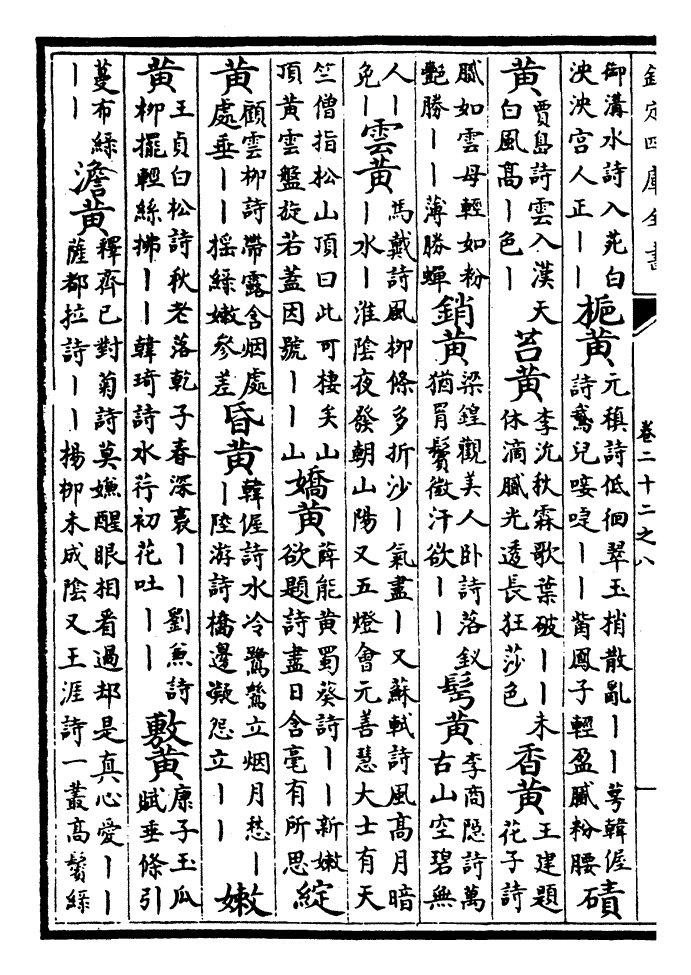 欽定四庫全書
卷二十二之八
一
御溝水詩入苑白
泱泱宫人正丨丨
栀黄
元稹詩低徊翠玉梢散亂丨丨萼韓偓
詩鵞兒唼啑丨丨觜鳳子輕盈膩粉腰
磧
黄
賈島詩雲入漢天
白風髙丨色丨
苔黄
李沇秋霖歌葉破丨丨未
休滴膩光透長狂莎色
香黄
王建題
花子詩
膩如雲母輕如粉
艶勝丨丨薄勝蟬
銷黄
梁鍠觀美人卧詩落釵
猶罥鬢微汗欲丨丨
髩黄
李商隱詩萬
古山空碧無
人丨
免丨
雲黄
馬戴詩風柳條多折沙丨氣盡丨又蘇軾詩風髙月暗
丨水丨淮陰夜發朝山陽又五燈會元善慧大士有天
竺僧指松山頂曰此可棲矣山
頂黄雲盤旋若葢因號丨丨山
嬌黄
薛能黄蜀葵詩丨丨新嫩
欲題詩盡日含毫有所思
綻
黄
顧雲柳詩帶露含烟處
處垂丨丨揺綠嫩參差
昏黄
韓偓詩水冷鷺鷥立烟月愁丨
丨陸游詩橋邊凝怨立丨丨
嫩
黄
王貞白松詩秋老落乾子春深裛丨丨劉兼詩
柳擺輕絲拂丨丨韓琦詩水荇初花吐丨丨
敷黄
康子玉瓜
賦垂條引
蔓布綠
丨丨
澹黄
釋齊已對菊詩莫嫌醒眼相看過却是真心愛丨丨
薩都拉詩丨丨楊柳未成陰又王涯詩一叢髙鬢綠